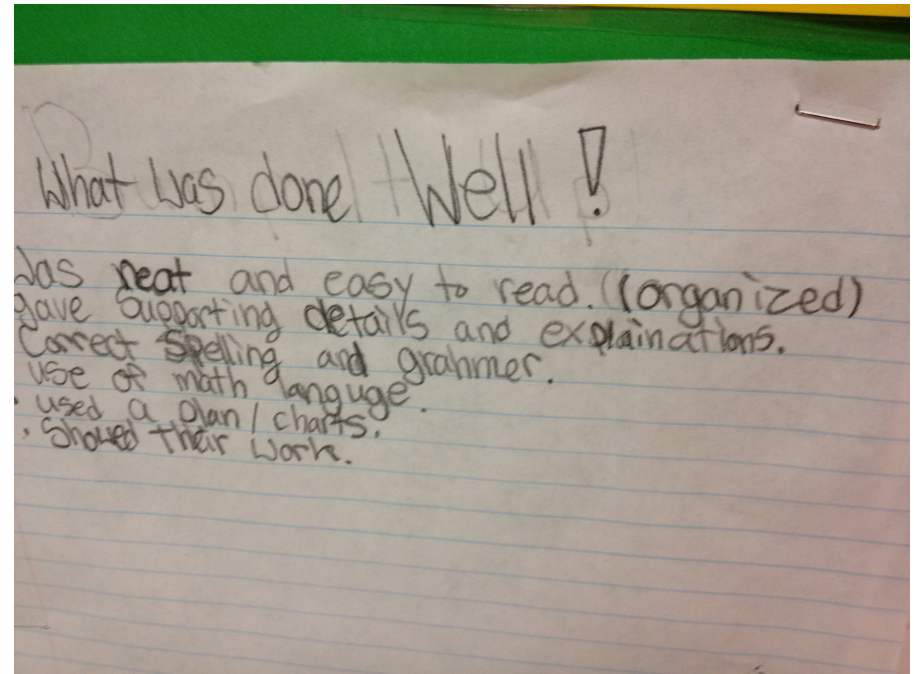 What was done Well!
Was neat and easy to read. (organized)
gave supporting details and explainations.
Correct Spelling and grahmer.
use of math languge.
. used a plan/charts.
. Showed their work.